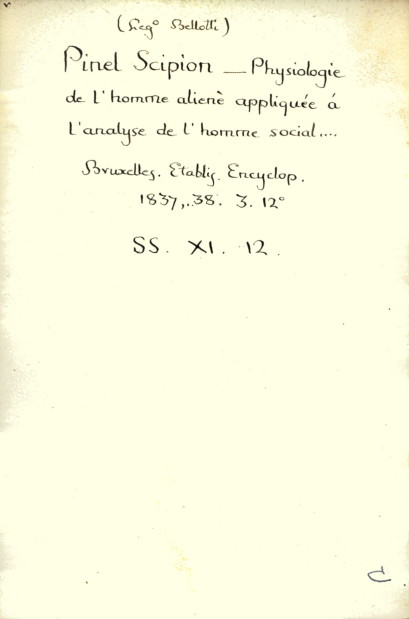 (Leg° Bellotti)
Pinel Scipion — Physiologie
de l'homme alienè appliquée á
l'analyse de l'homme social....
Bruxelles. Etablis. Encyclop.
1837,.38. 3. 12°
SS. XI. 12.
C